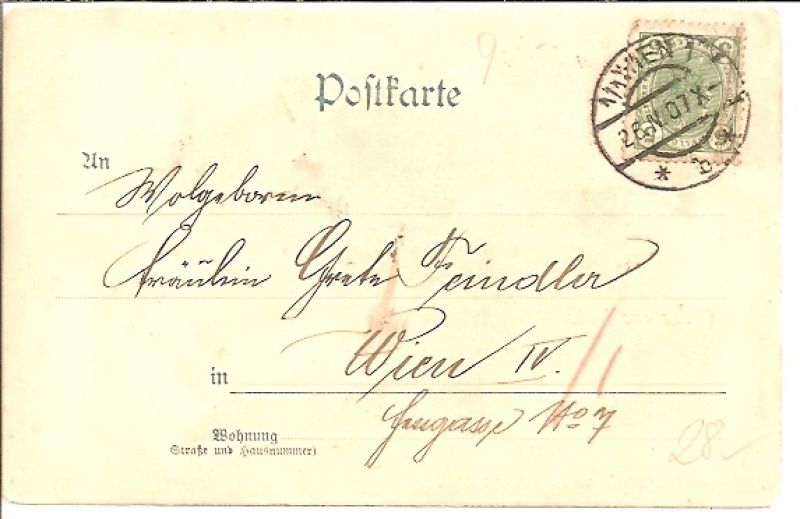 9
Postkarte
WIEN 1
26.IV.07.X
* b *
An
Wolgeboren
Fräulein Grete Feindler
in Wien IV.
No 7
Wohnung
Straße und Hausnummer)
28.-